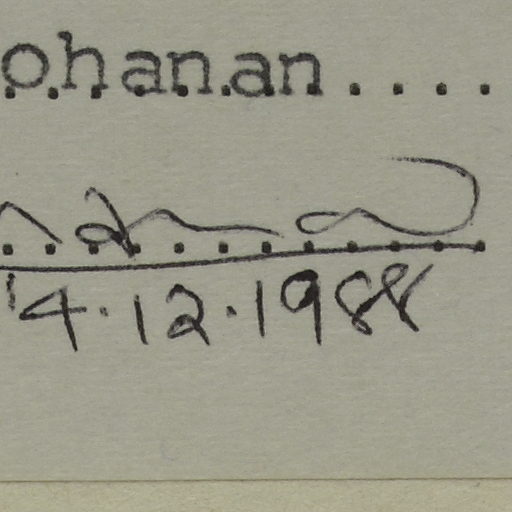 ohanan....
14.12.1988